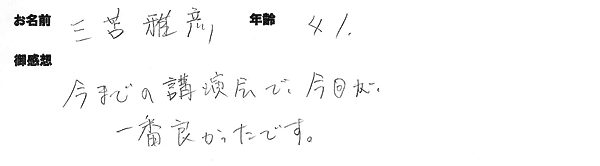 お名前 三苫雅彦 年齢 41.
御感想
今までの講演会で、今回が、
一番良かったです。